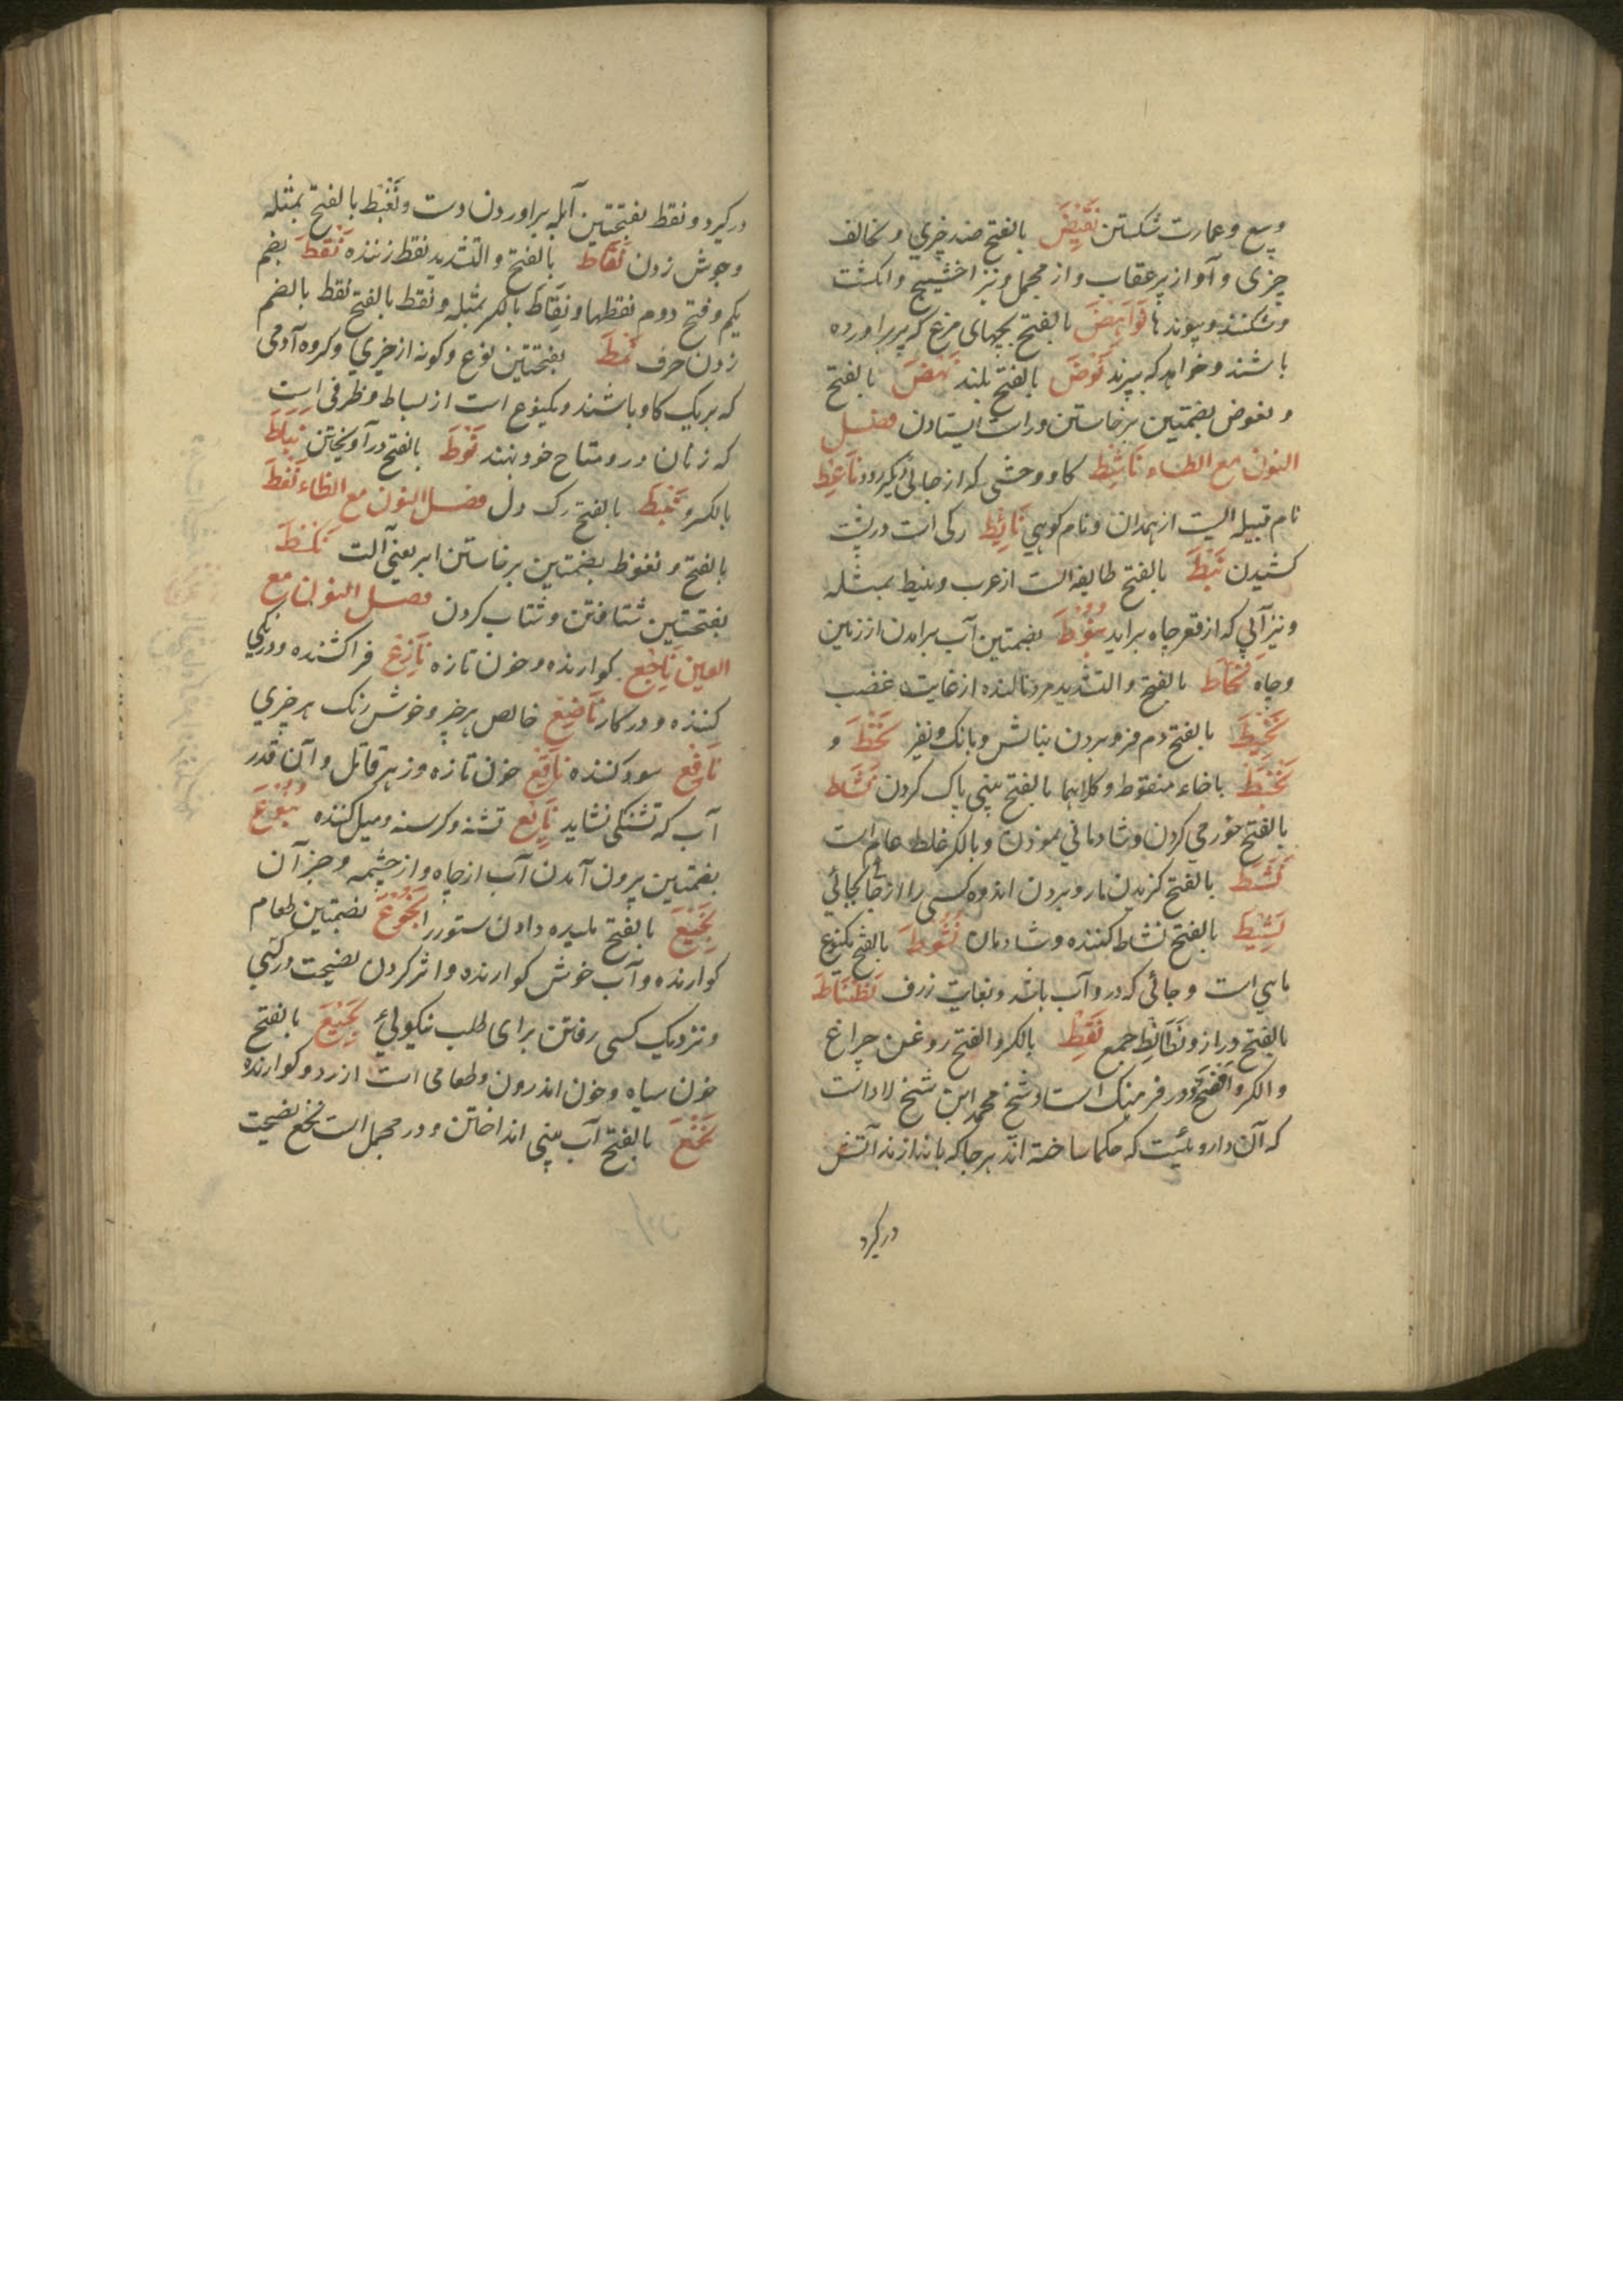 وسع و عمارت شکستن نَقِیضَ بالفتح ضد چیزي و مخالف
چیزی و آواز پر عقاب و از مجمل و نیز اخشیج و انکشت
و شکننده پیوندها نَوَاهِضَ بالفتح بچهای مرغ که پر براورده
باشند و خواهد که بپرند نَوْضَ بالفتح بلند نَهْضَ بالفتح
و نهوض بضمتین برخاستن و راست ایستادن فصل
النون مع الطاء نَاشِطَ کاو وحشی که از جائی دیکر رود نَاعِطَ
نام قبیله ایست از همدان و نام کوهي نَائِطَ رکی است در پشت
کشیدن نَبَطَ بالفتح طایفه است از عرب و نبیط بمثله
و نیز آبی که از قعر چاه براید نُبُوْطَ بضمتین آب برامدن از زمین
و چاه نَحَّاطَ بالفتح و التشدید مرد نالنده از غایت غضب
نَحِیْطَ بالفتح دم فرو بردن بنالش و بانک و نفیر نَحْطَ و
نَخْطَ با خاء منقوط و کلاهما بالفتح بینی پاک کردن نَشَاط
بالفتح خورمي کردن و شادماني نمودن و بالکسر غلط عام است
نَشْطَ بالفتح کزیدن مار و بردن اندوه کسی را از جا بجائي
نَشِیْطَ بالفتح نشاط کننده و شادمان نُشُوْطَ بالفتح یکنوع
ماهي است و چائی که درو آب باشد و بغایت ژرف نَطْنَاطَ
بالفتح دراز و نَطَانِط جمع نَفْطِ بالکسر و الفتح روغن چراغ
و الکسر افصح و در فرهنک استاد شیخ محمد ابن شیخ لاد است
که آن داروئیست که حکما ساخته اند هرجا که باندازند آتش
درکیرد
درکیرد و نفط بفتحتین آبله براوردن دست و نَفْط بالفتح بمثله
و جوش زدن نَقَّاط بالفتح و التشدید نقط زننده نُقَطَ بضم
یکم و فتح دوم نقطها و نِقَاط بالکسر بمثله و نقط بالفتح نقط بالضم
زدن حرف نَمَطَ بفتحتین نوع و کونه از چیزي و کروه آدمی
که بریک کار باشند و یکنوع است از بساط و ظرفی است
که زنان درو متاع خود نهند نَوْطَ بالفتح در آویختن نِیَاطَ
بالکسر و نَیْطَ بالفتح رک دل فصل النون مع الظاء نَعْظَ
بالفتح و نعوظ بضمتین برخاستن ایر یعنی آلت نَکَظَ
بفتحتین شتافتن و شتاب کردن فصل النون مع
العین نَاجِع کوارنده و خون تازه نَازِعْ فراکشنده و درنکي
کننده و درکار نَاصِعْ خالص هرچیز و خوش رنک هرچیزي
نَافِعْ سود کننده نَاقِعْ خون تازه و زهر قاتل و آن قدر
آب که تشنکی نشاید نَایِعْ تشنه و کرسنه و میل کننده نُبُوْعَ
بضمتین بیرون آمدن آب از چاه و از چشمه و جز آن
نَجِیْعَ بالفتح بلیده دادن ستور را نُجُوْعَ بضمتین طعام
کوارنده و آب خوش کوارنده و اثر کردن نصیحت در کسی
و نزدیک کسی رفتن برای طلب نیکوئي نَجِیْعَ بالفتح
خون سیاه و خون اندرون و طعامی است از رد و کوارنده
نَخْعَ بالفتح آب بینی انداختن و در مجمل است نخع نصیحت